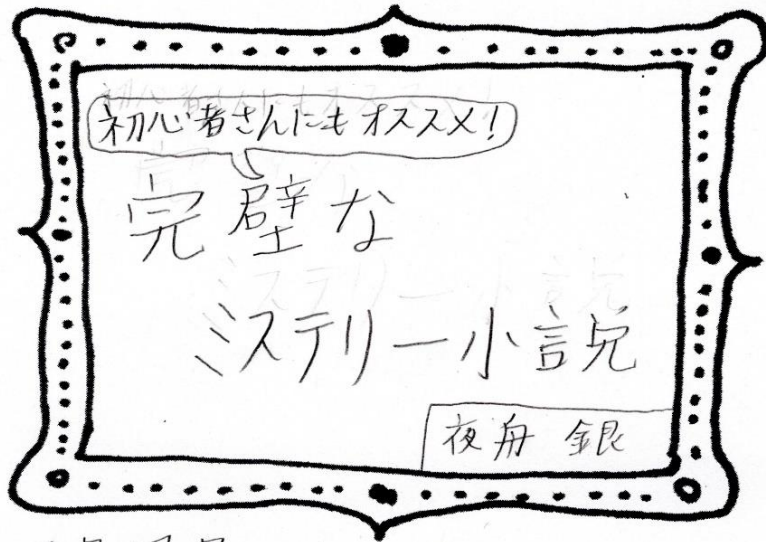 初心者さんにもオススメ!
完璧な
ミステリー小説
夜舟 銀